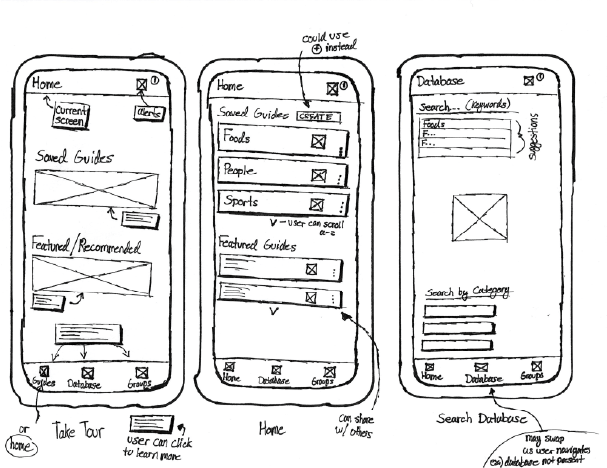 Home
current
screen
alerts
Saved Guides
Featured/Recommended
Guides
Database
Groups
or
home
Take Tour
user can click
to learn more
could use
+ instead
Home
Saved Guides
CREATE
Foods
People
Sports
v - user can scroll
a-z
Featured Guides
Home
Database
Groups
Home
can share
w/ others
Database
Search... (keywords)
Foods
F...
F...
suggestions
Search by Category
Home
Database
Groups
Search Database
may swap
as user navigates
ex) database not present